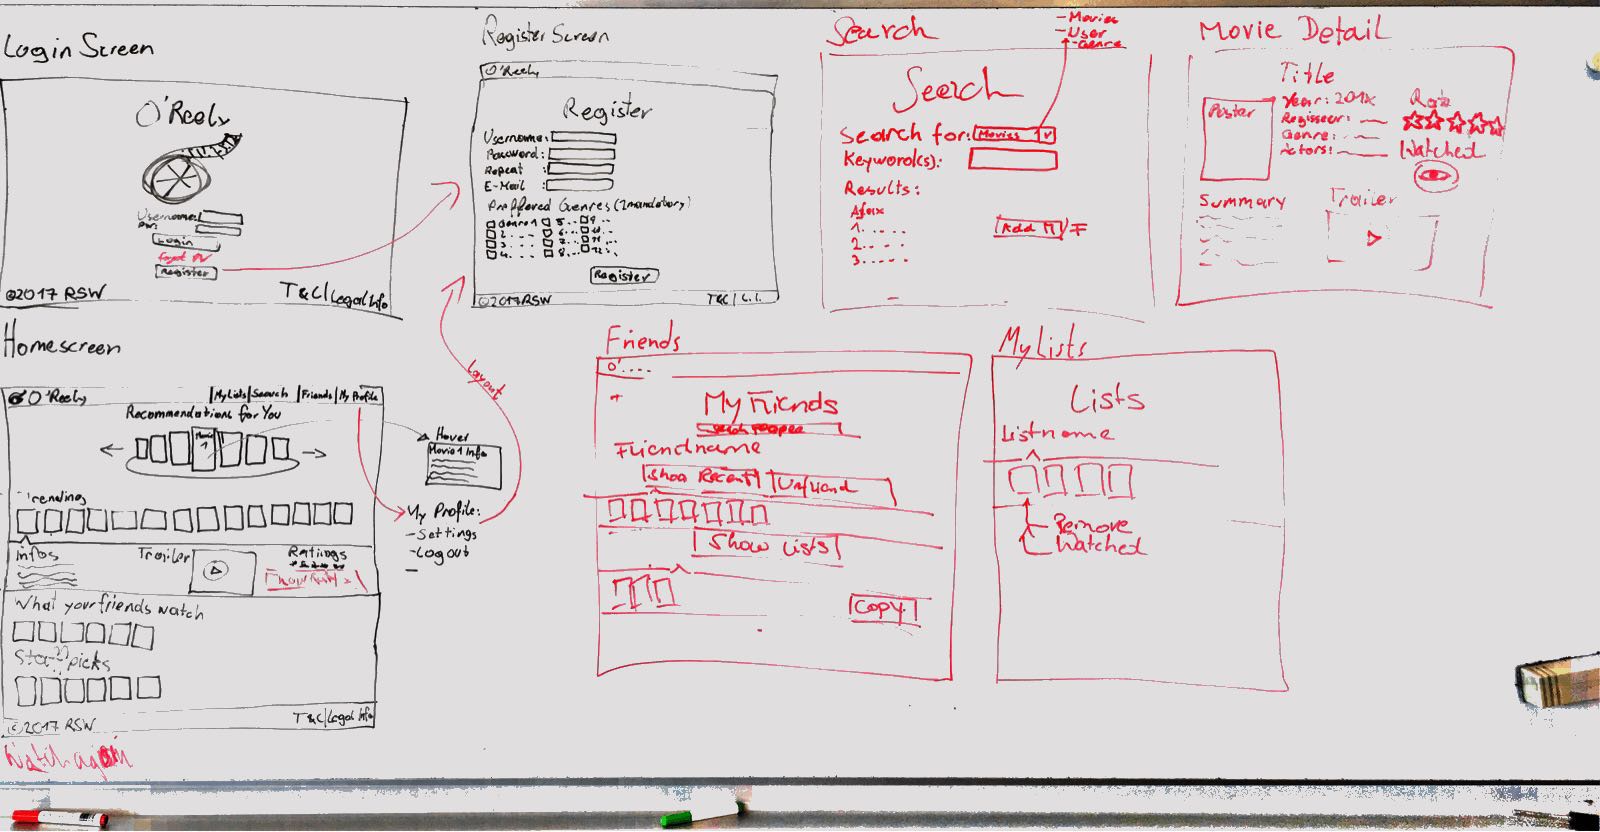 Login Screen
O'Reely
Username:
PW:
Login
Forgot PW
Register
©2017 RSW
T&C|Legal Info
Register Screen
O'Reely
Register
Username:
Password:
Repeat :
E-Mail :
Preffered Genres (2 mandatory)
Genre 1 5... 9...
2... 6... 10...
3... 7... 11...
4... 8... 12...
Register
©2017 RSW
T&C | L.I.
Search
- Movies
- User
- Genre
Search
Search for: Movies v
Keyword(s):
Results:
1.....
2.....
3.....
Add M/F
Movie Detail
Title
Poster
Year: 201x
Regisseur:
Genre:
Actors:
Rate
Watched
Summary
Trailer
Homescreen
O'Reely
My Lists|Search |Friends|My Profile
Recommendations for You
Movie 1
Hover
Movie 1 Info
Trending
Infos
Trailer
Ratings
What your friends watch
Staff picks
©2017 RSW
T&C|Legal Info
Watch again
My Profile:
- Settings
- Logout
-
Layout
Friends
O'....
+
My Friends
Search People
Friendname
Show Recent
Unfriend
Show Lists
Copy
My Lists
Lists
Listname
Remove
Watched